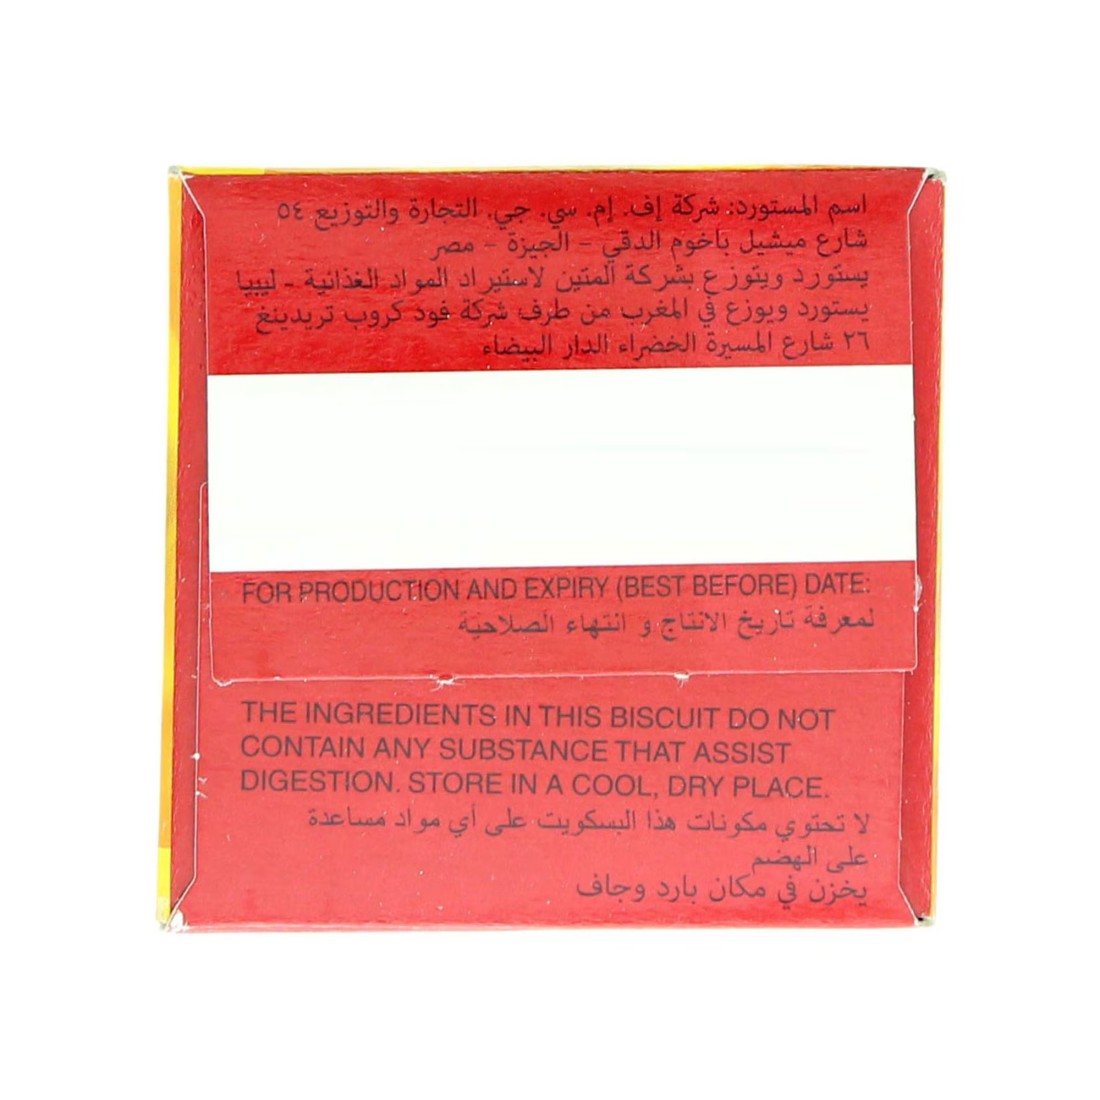 اسم المستورد: شركة إف. إم. سي. جي. التجارة والتوزيع ٥٤
شارع ميشيل باخوم الدقي - الجيزة - مصر
يستورد ويتوزع بشركة المتين لاستيراد المواد الغذائية - ليبيا
يستورد ويوزع في المغرب من طرف شركة فود كروب تريدينغ
٢٦ شارع المسيرة الخضراء الدار البيضاء
FOR PRODUCTION AND EXPIRY (BEST BEFORE) DATE:
لمعرفة تاريخ الانتاج و انتهاء الصلاحية
THE INGREDIENTS IN THIS BISCUIT DO NOT
CONTAIN ANY SUBSTANCE THAT ASSIST
DIGESTION. STORE IN A COOL, DRY PLACE.
لا تحتوي مكونات هذا البسكويت على أي مواد مساعدة
على الهضم
يخزن في مكان بارد وجاف